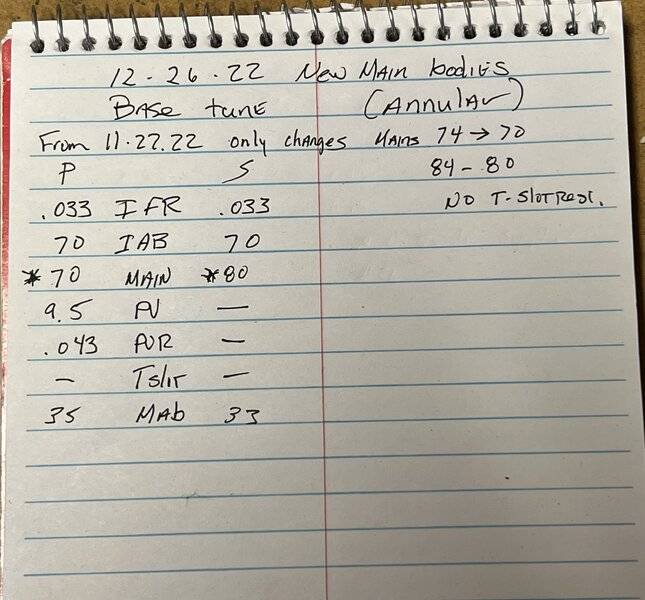 12-26.22 New Main bodies
Base tune (Annular)
From 11.27.22 only changes Mains 74 → 70
P S 84-80
.033 IFR .033 No T-Slot Rest.
70 IAB 70
*70 MAIN *80
9.5 PV —
.043 PVR —
— Tslit —
35 MAb 33